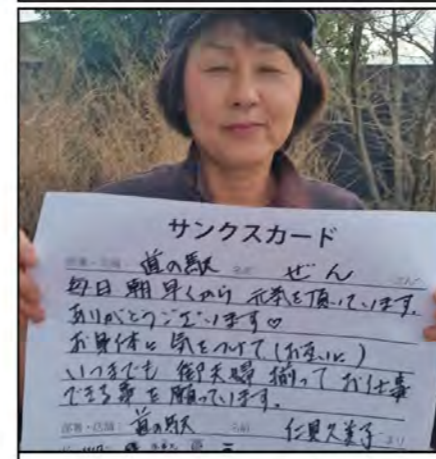 サンクスカード
部署・店舗 道の駅 名前 ぜん さんへ
毎日朝早くから元気を頂いています。
ありがとうございます♡
お身体に気をつけて(お互いに)
いつまでも御夫婦揃ってお仕事
できる事を願っています。
部署・店舗 道の駅 名前 仁見久美子 より